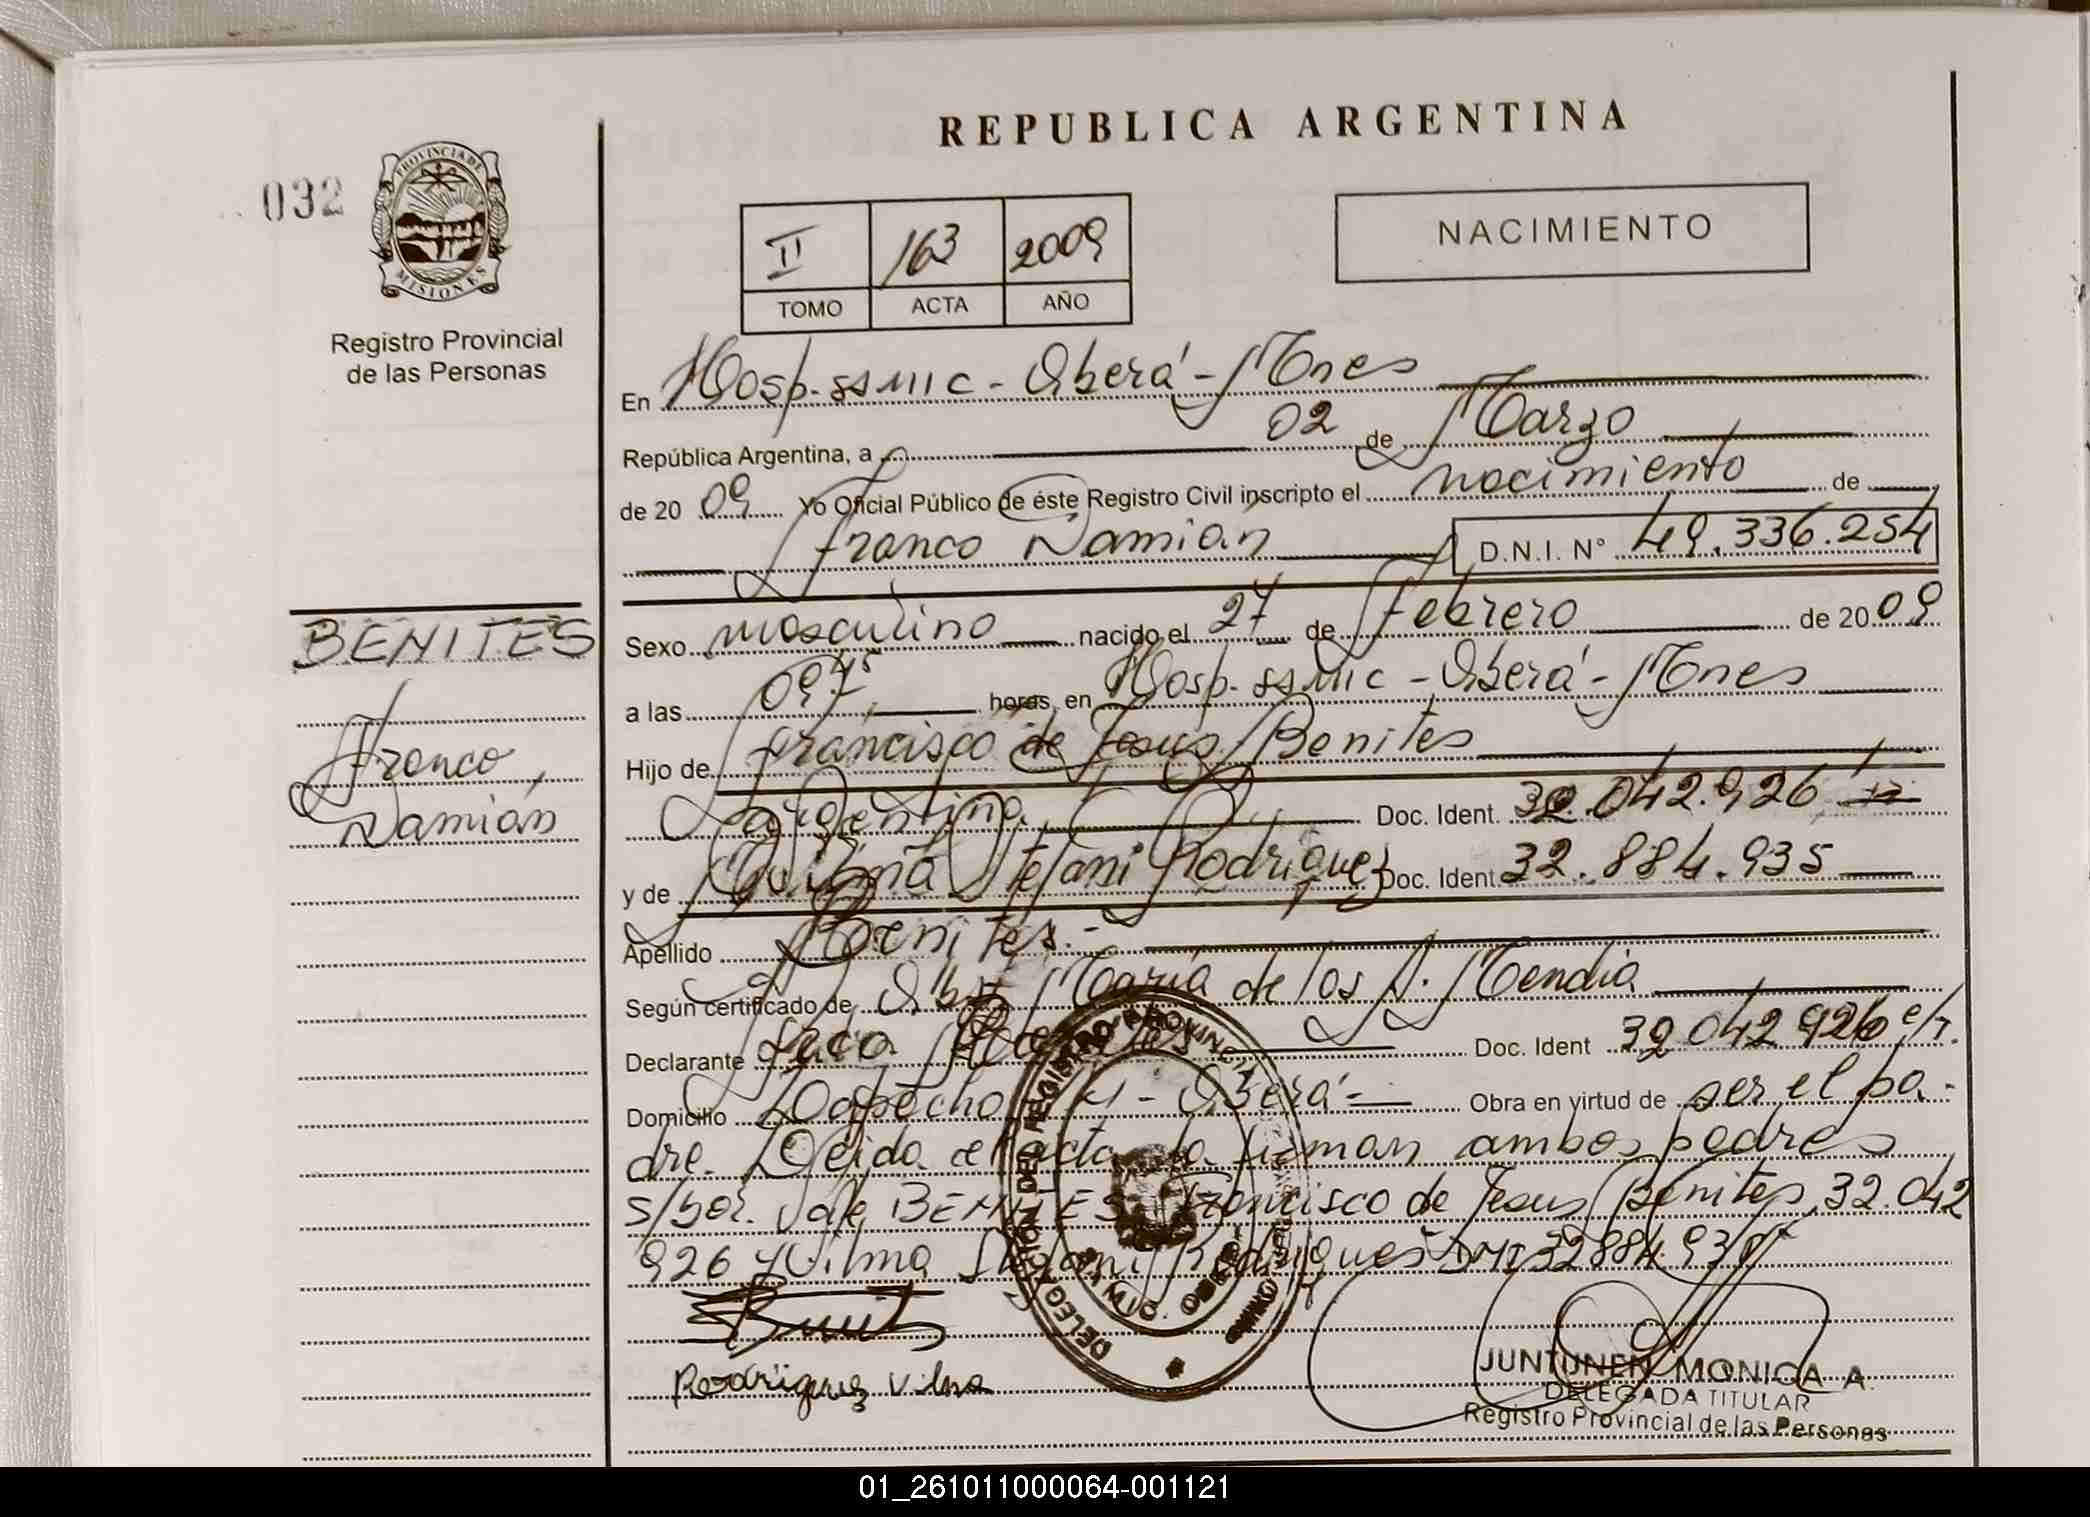 REPUBLICA ARGENTINA
032
PROVINCIA DE
MISIONES
Registro Provincial
de las Personas
II 163 2009
TOMO ACTA AÑO
NACIMIENTO
En Hosp. SSMIC - Oberá - Mnes
República Argentina, a 02 de Marzo
de 2009 Yo Oficial Público de éste Registro Civil inscripto el nacimiento de
Franco Damián D.N.I. Nº 49.336.254
BENITES
Franco
Damián
Sexo masculino nacido el 27 de Febrero de 2009
a las 09 horas, en Hosp. SSMIC - Oberá - Mnes
Hijo de Francisco de Jesus Benites
argentino Doc. Ident. 32.042.926
y de Vilma Stefani Rodriguez Doc. Ident. 32.884.935
Apellido Benites.-
Según certificado de Obst María de los A. Mendia
Declarante Doc. Ident 32042926 e/r.
Domicilio Lapacho - Oberá - Obra en virtud de ser el pa-
dre. Leida el acta la firman ambos padres
s/bor. Vale BENITES Francisco de Jesus Benites 32.042
926 y Vilma Stefani Rodrigues DNI 32884.935
Rodriguez Vilma
DELEGACIÓN DEL REGISTRO PROVINCIAL
JUNTUNEN MONICA A.
DELEGADA TITULAR
Registro Provincial de las Personas
01_261011000064-001121